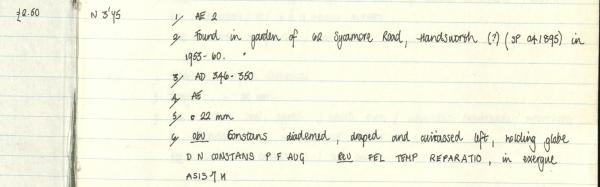 £2.50 N 3'45 1/ AE 2
2/ Found in garden of 62 Sycamore Road, Handsworth (?) (SP 041895) in
1953-60.
3/ AD 346-350
4/ AE
5/ c 22 mm
6/ obv Constans diademed, draped and cuirassed left, holding globe
D N CONSTANS P F AUG Rev FEL TEMP REPARATIO, in exergue
ASIS